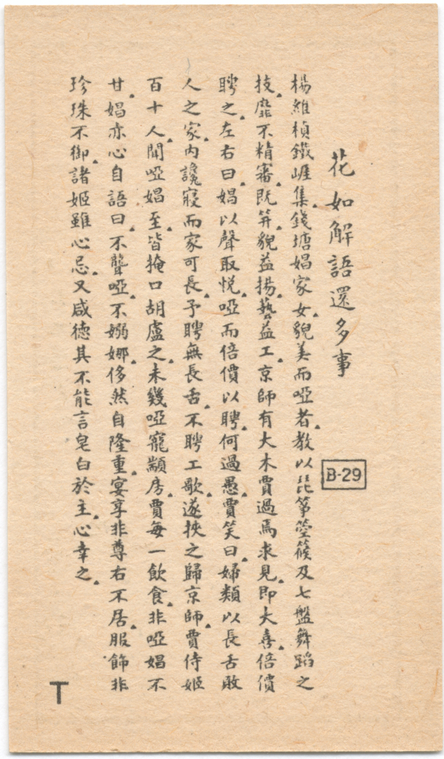 花如解語還多事
B-29
楊維楨鐵崖集錢塘娼家女貌美而啞者教以琵箏箜篌及七盤舞蹈之
技靡不精審既笄貌益揚藝益工京師有大木賈過焉求見即大喜倍價
聘之左右曰娼以聲取悅啞而倍價以聘何過愚賈笑曰婦類以長舌敗
人之家內讒寢而家可長予聘無長舌不聘工歌遂挾之歸京師賈侍姬
百十人聞啞娼至皆掩口胡盧之未幾啞寵顓房賈每一飲食非啞娼不
甘娼亦心自語曰不聾啞不嫋娜侈然自隆重宴享非尊右不居服飾非
珍珠不御諸姬雖心忌又咸德其不能言皂白於主心幸之
T